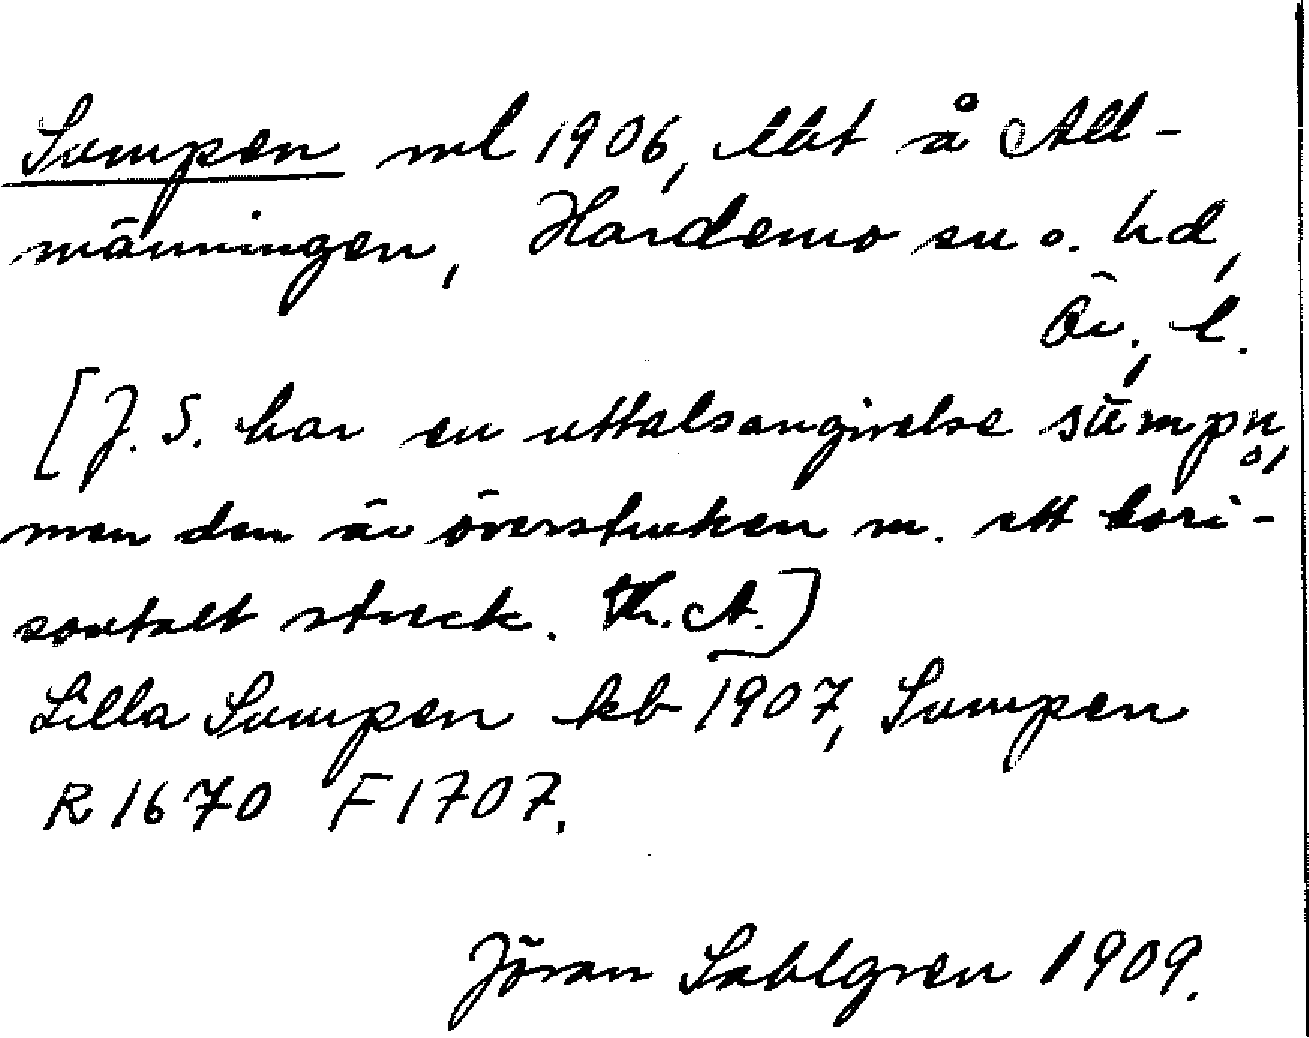 Sumpen ml 1906, lht å All-
männingen, Hardemo sn o. hd,
Ör. l.
[J. S. har en uttalsangivelse
men den är överstruken m. ett hori-
sontalt streck. Th. A.]
Lilla Sumpen kb 1907, Sumpen
R 1670 F 1707.
Jöran Sahlgren 1909.